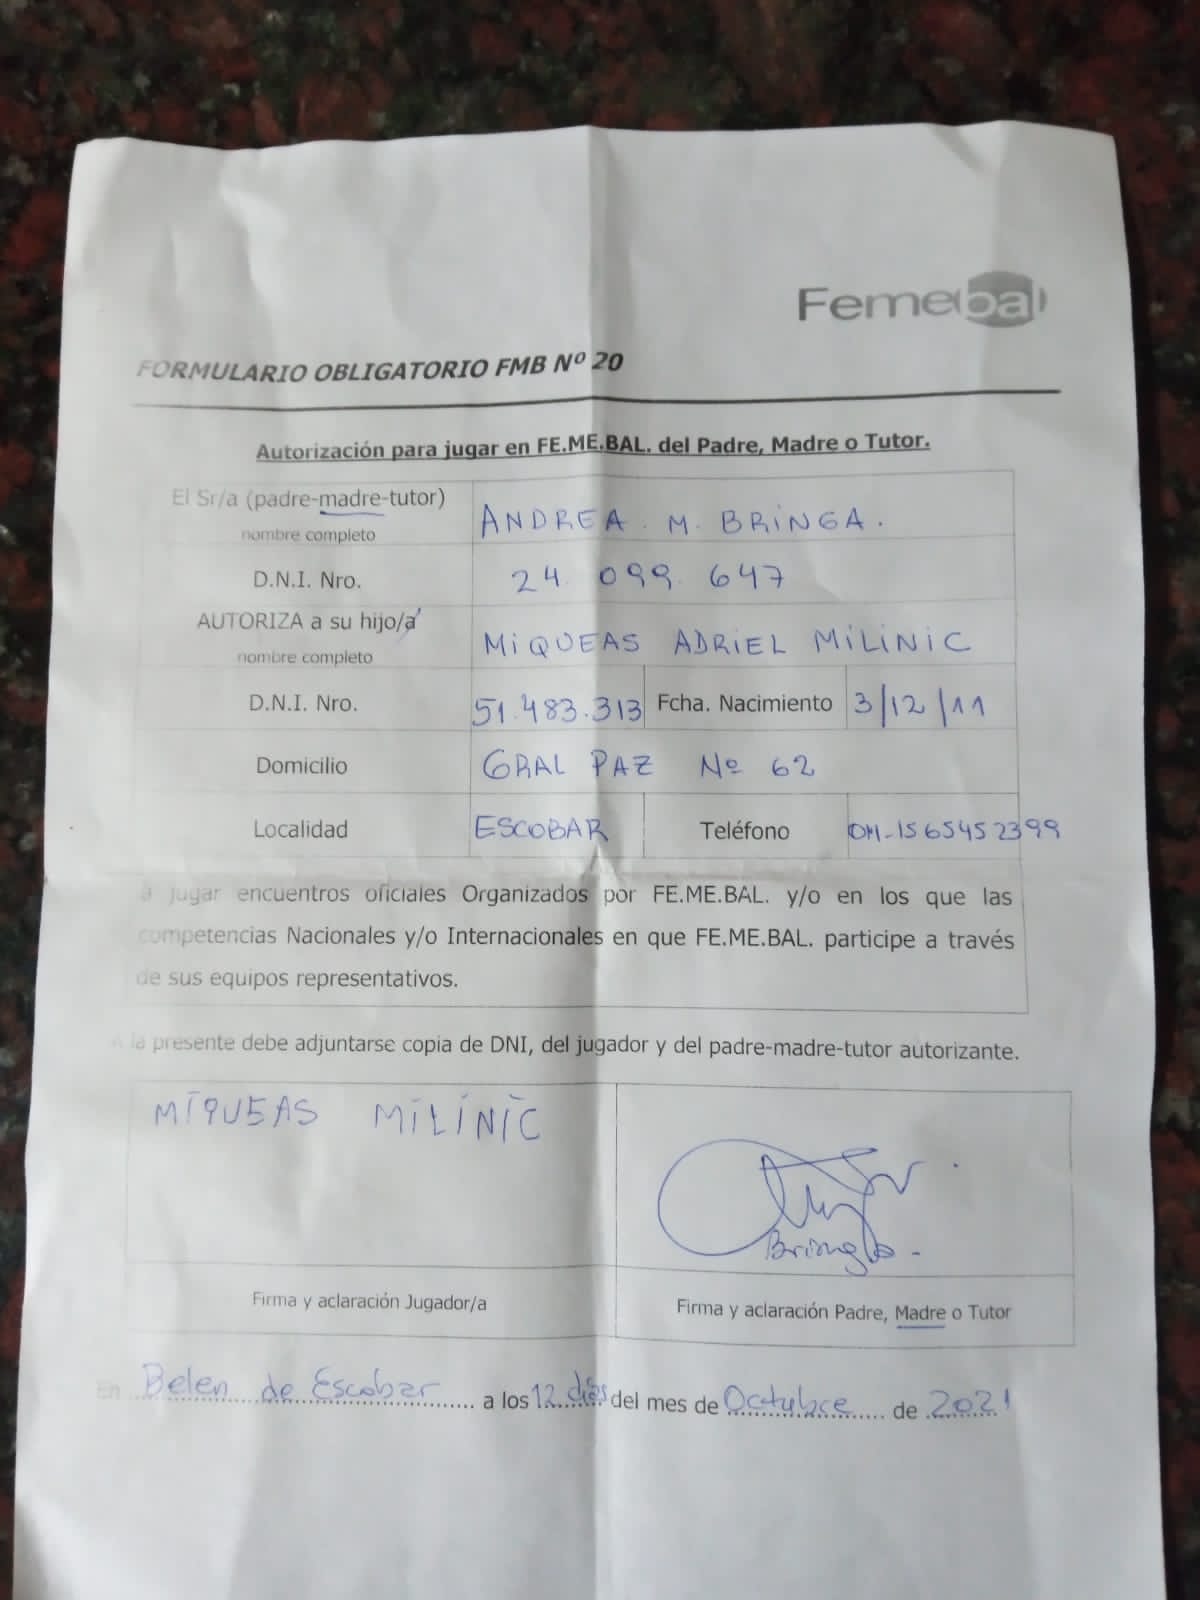 Femebal
FORMULARIO OBLIGATORIO FMB Nº 20
Autorización para jugar en FE.ME.BAL. del Padre, Madre o Tutor.
El Sr/a (padre-madre-tutor)
nombre completo
ANDREA. M. BRINGA.
D.N.I. Nro.
24. 099. 647
AUTORIZA a su hijo/a
nombre completo
MIQUEAS ADRIEL MILINIC
D.N.I. Nro.
51.483.313
Fcha. Nacimiento
3/12/11
Domicilio
GRAL PAZ Nº 62
Localidad
ESCOBAR
Teléfono
1565452399
a jugar encuentros oficiales Organizados por FE.ME.BAL. y/o en los que las
competencias Nacionales y/o Internacionales en que FE.ME.BAL. participe a través
de sus equipos representativos.
A la presente debe adjuntarse copia de DNI, del jugador y del padre-madre-tutor autorizante.
MIQUEAS MILINIC
Bringa.
Firma y aclaración Jugador/a
Firma y aclaración Padre, Madre o Tutor
En Belen de Escobar a los 12 dias del mes de Octubre de 2021